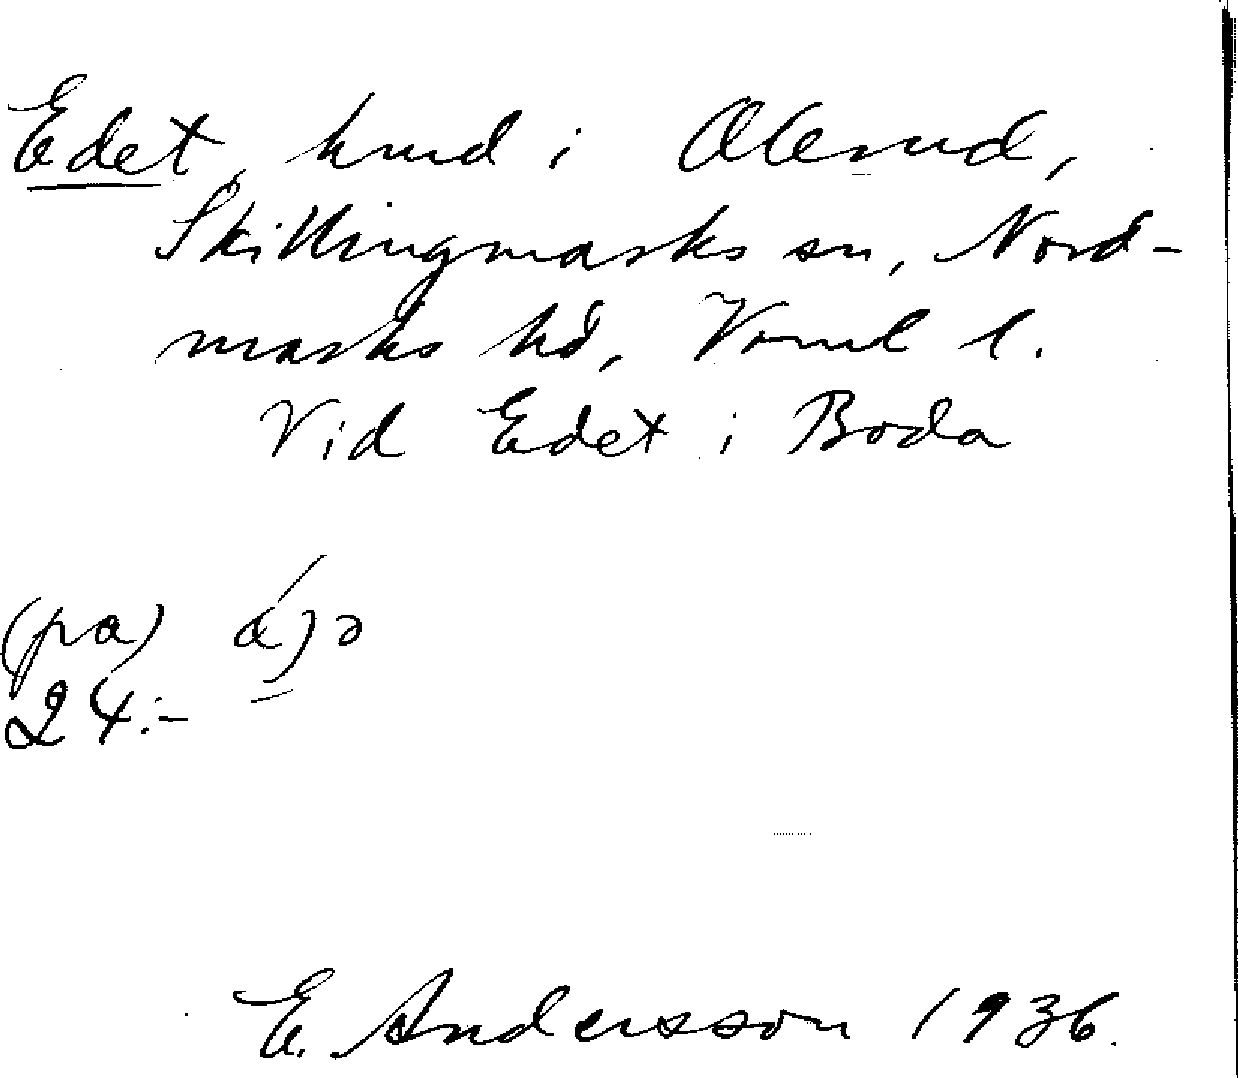 Edet, hmd i Ålerud,
Skillingmarks sn, Nord-
marks hd, Vrml l.
Vid Edet i Boda
(pa)
24:-
E. Andersson 1936.